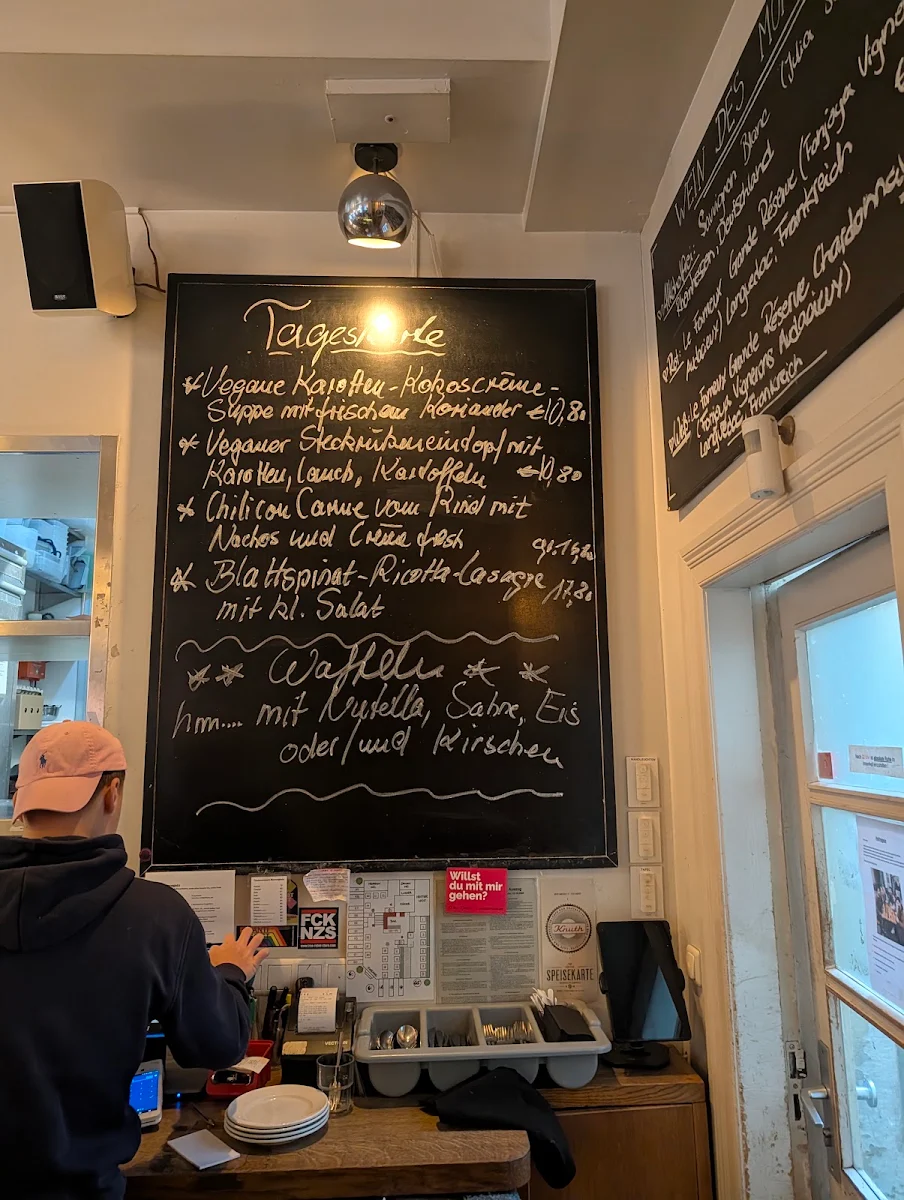 Tageskarte
* Vegane Karotten-Kokoscrème-
Suppe mit frischem Koriander €10,80
* Veganer Steckrübeneintopf mit
Karotten, Lauch, Kartoffeln €10,80
* Chili con Carne vom Rind mit
Nachos und Crème fresh
* Blattspinat-Ricotta-Lasagne 17,80
mit kl. Salat
** Waffeln **
hm.... mit Nutella, Sahne, Eis
oder/und Kirschen
WEIN DES
Sauvignon Blanc (Julia
Deutschland
Rot: Le Fameux Grande Réserve (Fonjoya Vigne
Audacieux) Languedoc, Frankreich
Le Fameux Grande Réserve, Chardonnay
(Fonjoya Vignerons Audacieux)
Languedoc, Frankreich
Willst
du mit mir
gehen?
FCK
NZS
Knuth
SPEISEKARTE